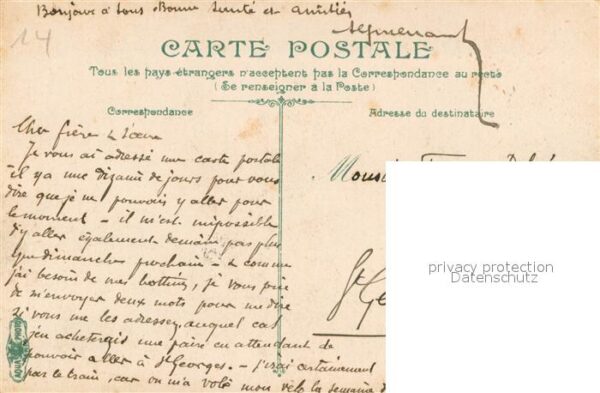 Bonjour à tous Bonne Santé et amitiés
14
CARTE POSTALE
Tous les pays étrangers n'acceptent pas la Correspondance au recto
(Se renseigner à la Poste)
Correspondance
Adresse du destinataire
Cher frère & Sœur
Je vous ai adressé une carte postale
il y a une dizaine de jours pour vous
dire que je ne pouvais y aller pour
le moment - il m'est impossible
d'y aller également demain pas plus
que dimanche prochain - & comme
j'ai besoin de mes bottins, je vous prie
de m'envoyer deux mots pour me dire
si vous me les adressez, auquel cas
j'en acheterais une paire en attendant de
pouvoir aller à St Georges. - J'irai certainement
par le train, car on m'a volé mon vélo la semaine d
St Ge
privacy protection
Datenschutz